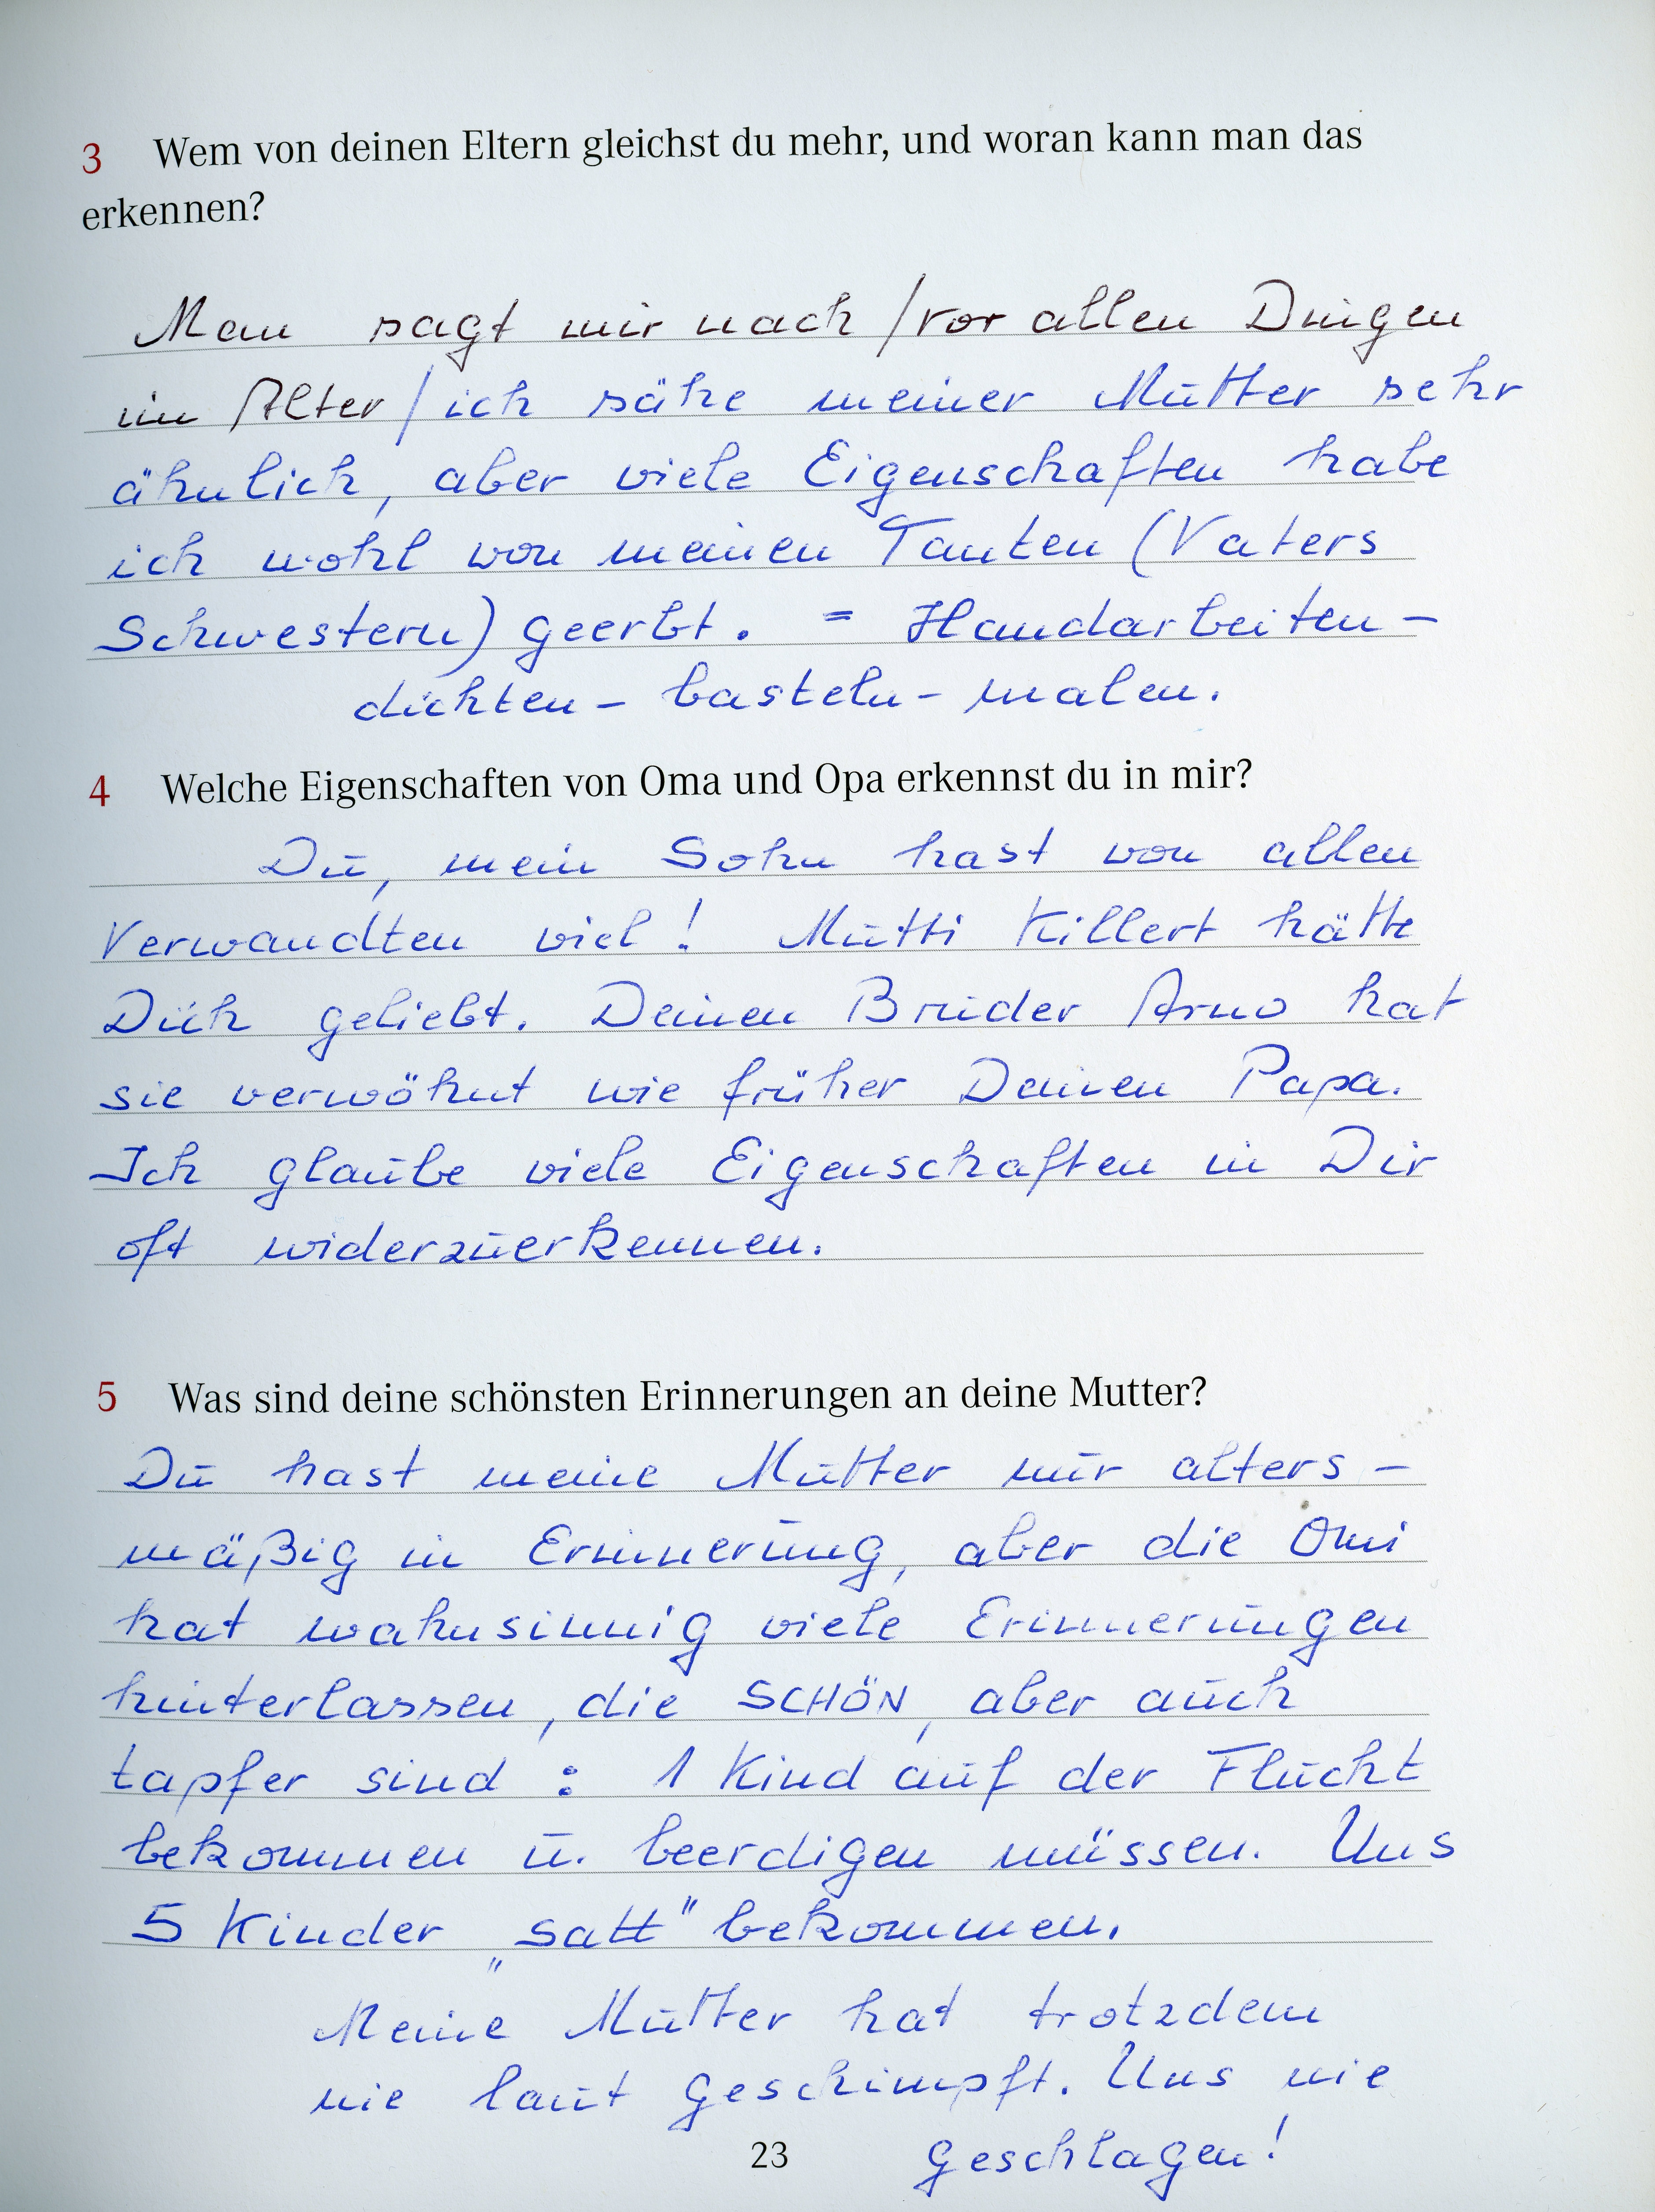 3 Wem von deinen Eltern gleichst du mehr, und woran kann man das
erkennen?
Man sagt mir nach /vor allen Dingen
im Alter/ ich sähe meiner Mutter sehr
ähnlich, aber viele Eigenschaften habe
ich wohl von meinen Tanten (Vaters
Schwestern) geerbt. = Handarbeiten -
dichten - basteln - malen.
4 Welche Eigenschaften von Oma und Opa erkennst du in mir?
Du, mein Sohn hast von allen
Verwandten viel! Mutti Killert hätte
Dich geliebt. Deinen Bruder Arno hat
sie verwöhnt wie früher Deinen Papa.
Ich glaube viele Eigenschaften in Dir
oft widerzuerkennen.
5 Was sind deine schönsten Erinnerungen an deine Mutter?
Du hast meine Mutter nur alters-
mäßig in Erinnerung, aber die Omi
hat wahnsinnig viele Erinnerungen
hinterlassen, die SCHÖN, aber auch
tapfer sind : 1 Kind auf der Flucht
bekommen u. beerdigen müssen. Uns
5 Kinder „satt" bekommen.
Meine Mutter hat trotzdem
nie laut geschimpft. Uns nie
geschlagen!
23